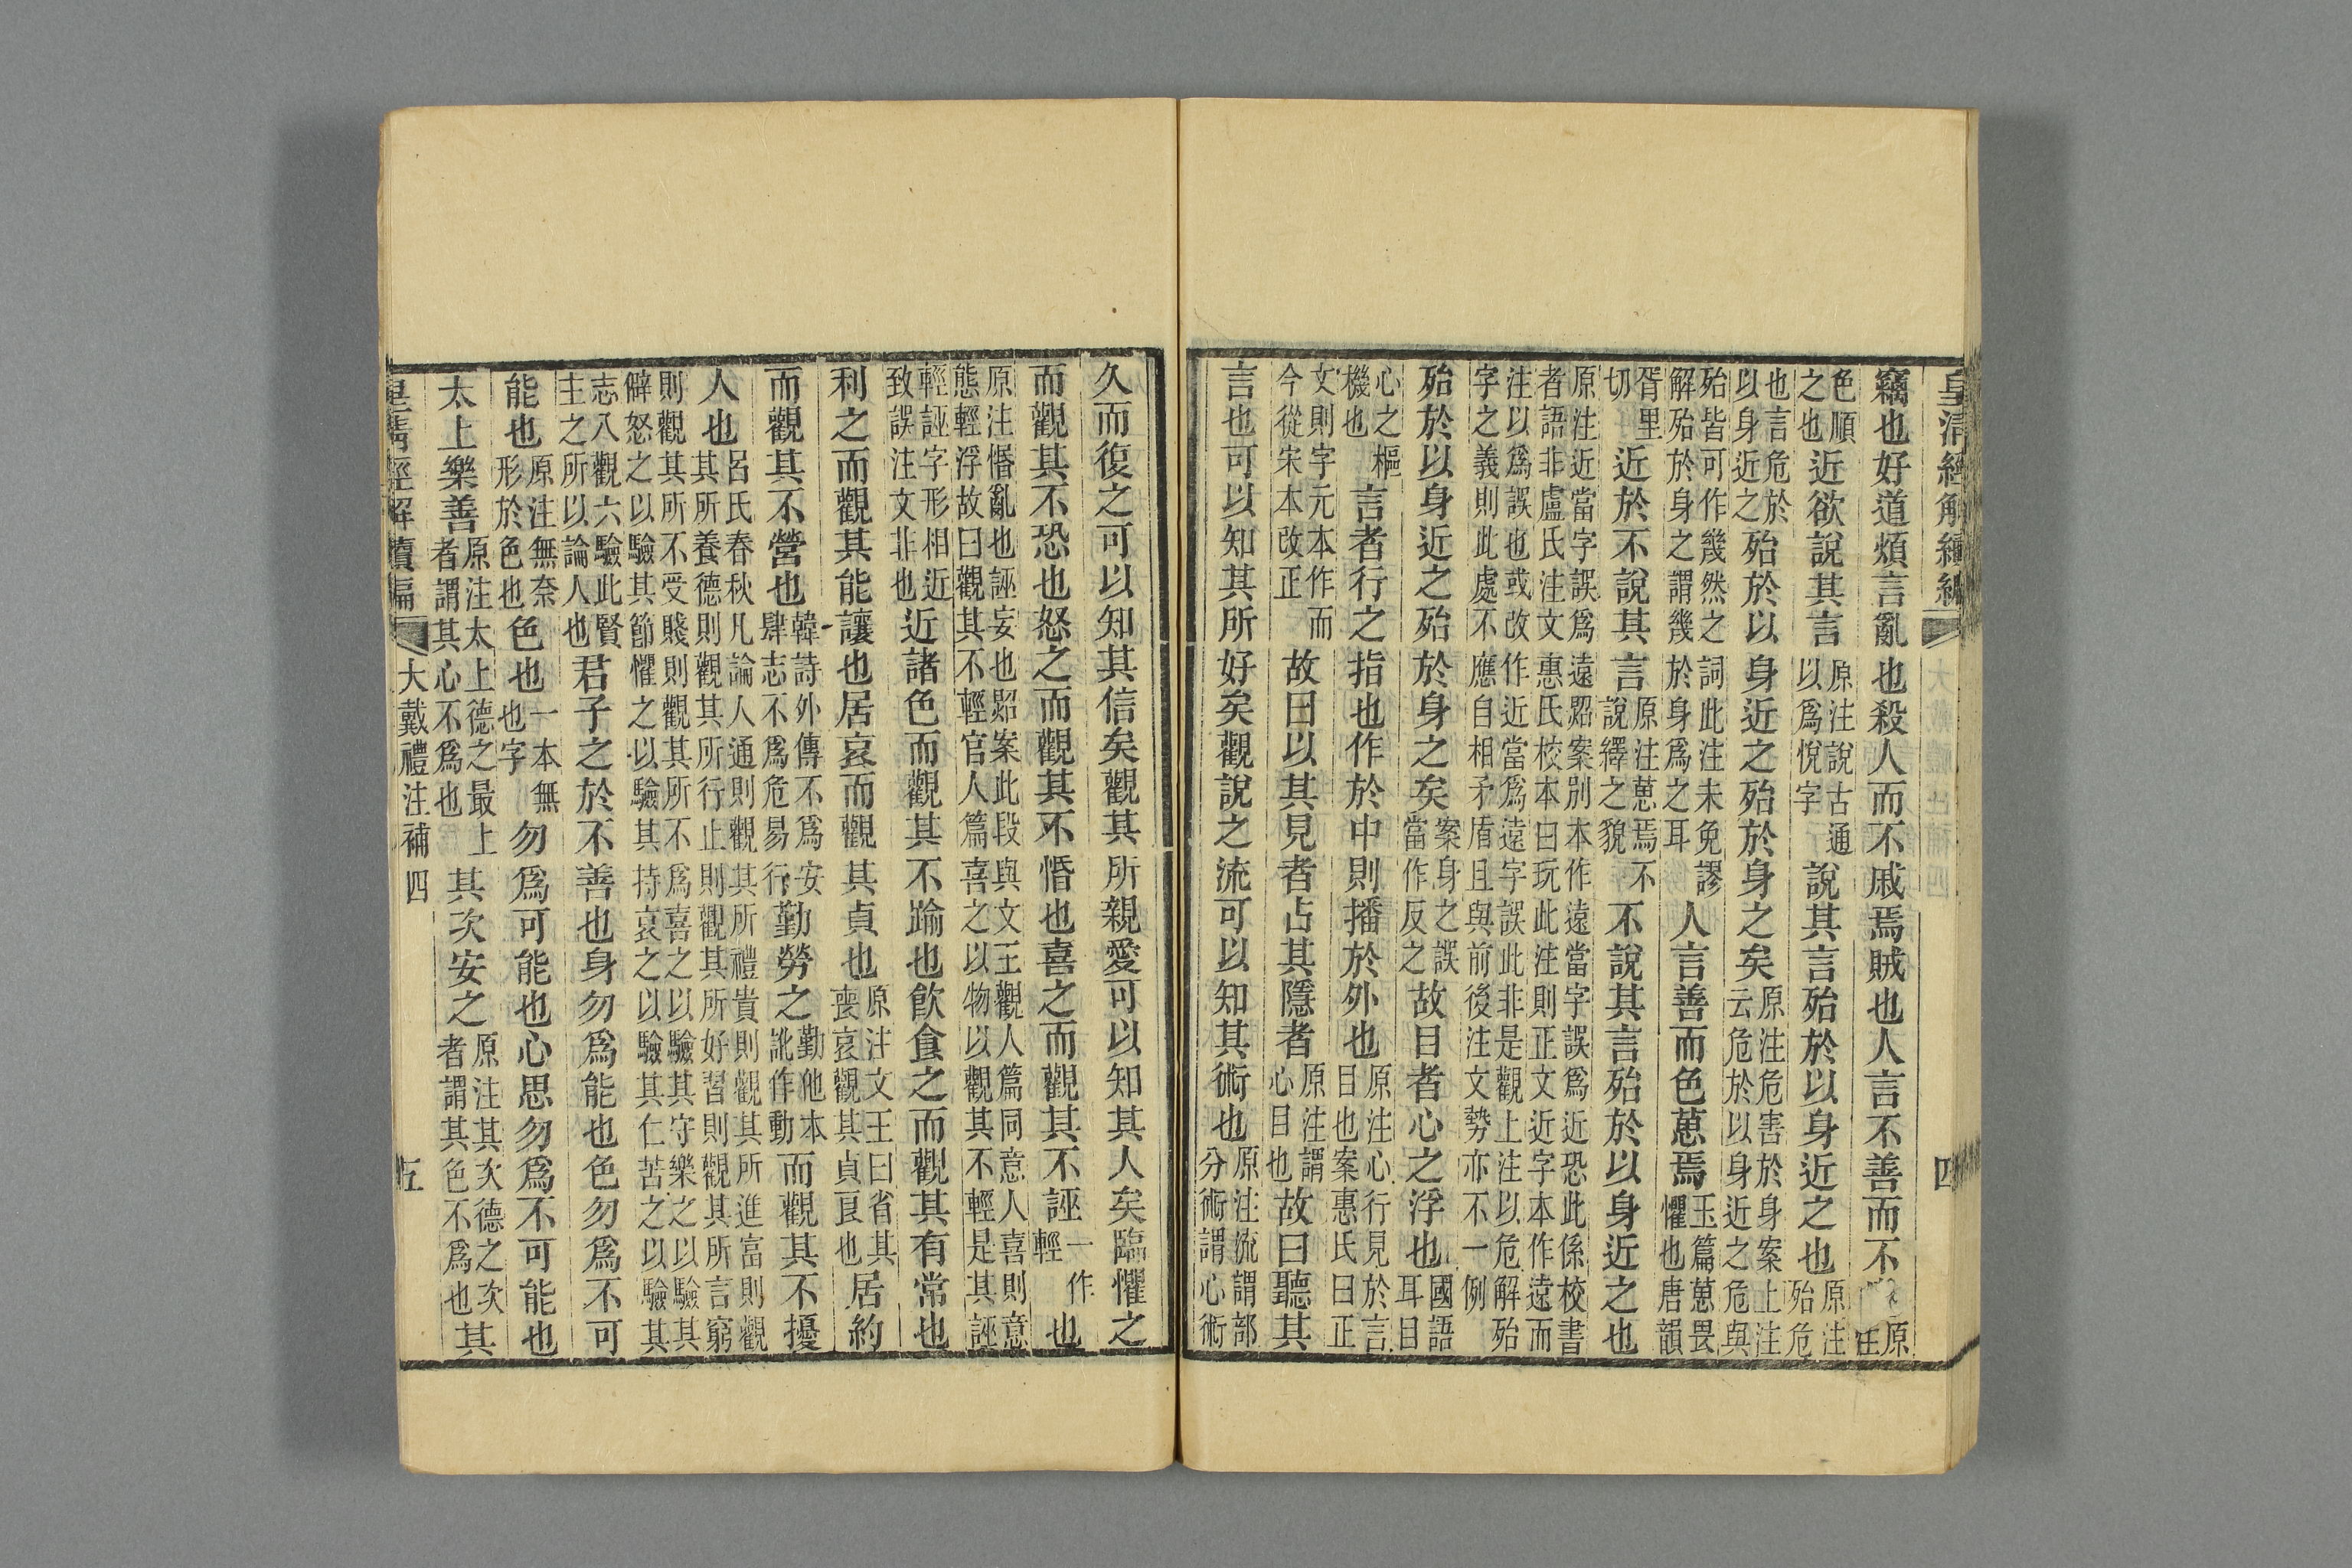 皇清經解續編
四
竊也好道煩言亂也殺人而不戚焉賊也人言不善而不 原注
色順之也近欲說其言原注說古通以爲悅字說其言殆於以身近之也原注殆危
也言危於以身近之殆於以身近之殆於身之矣原注危害於身案上注云危於以身近之危與
殆皆可作幾然之解殆於身之謂幾詞此注未免謬於身爲之耳人言善而色葸焉玉篇葸畏懼也唐韻
胥里切近於不說其言原注葸焉不說繹之貌不說其言殆於以身近之也
原注近當字誤爲遠照案別本作遠當字誤爲近恐此係校書者語非盧氏注文惠氏校本曰玩此注則正文近字本作遠而
注以爲誤也或改作近當爲遠字誤此非是觀上注以危解殆字之義則此處不應自相矛盾且與前後注文勢亦不一例
殆於以身近之殆於身之矣案身之誤當作反之故目者心之浮也國語耳目
心之樞機也言者行之指也作於中則播於外也原注心行見於言目也案惠氏曰正
文則字元本作而今從宋本改正故曰以其見者占其隱者原注謂心目也故曰聽其
言也可以知其所好矣觀說之流可以知其術也原注流謂部分術謂心術
久而復之可以知其信矣觀其所親愛可以知其人矣臨懼之
而觀其不恐也怒之而觀其不惛也喜之而觀其不誣一作輕也
原注惛亂也誣妄也照案此段與文王觀人篇同意人喜則意態輕浮故曰觀其不輕官人篇喜之以物以觀其不輕是其誣
輕誣字形相近致誤注文非也近諸色而觀其不踰也飮食之而觀其有常也
利之而觀其能讓也居哀而觀其貞也原注文王曰省其喪哀觀其貞良也居約
而觀其不營也韓詩外傳不爲安肆志不爲危易行勤勞之勤他本訛作動而觀其不擾
人也呂氏春秋凡論人通則觀其所禮貴則觀其所進富則觀其所養德則觀其所行止則觀其所好習則觀其所言窮
則觀其所不受賤則觀其所不爲喜之以驗其守樂之以驗其僻怒之以驗其節懼之以驗其持哀之以驗其仁苦之以驗其
志八觀六驗此賢主之所以論人也君子之於不善也身勿爲能也色勿爲不可
能也原注無奈形於色也色也一本無也字勿爲可能也心思勿爲不可能也
太上樂善原注太上德之最上者謂其心不爲也其次安之原注其次德之次者謂其色不爲也其
皇清經解續編
大戴禮注補四
五